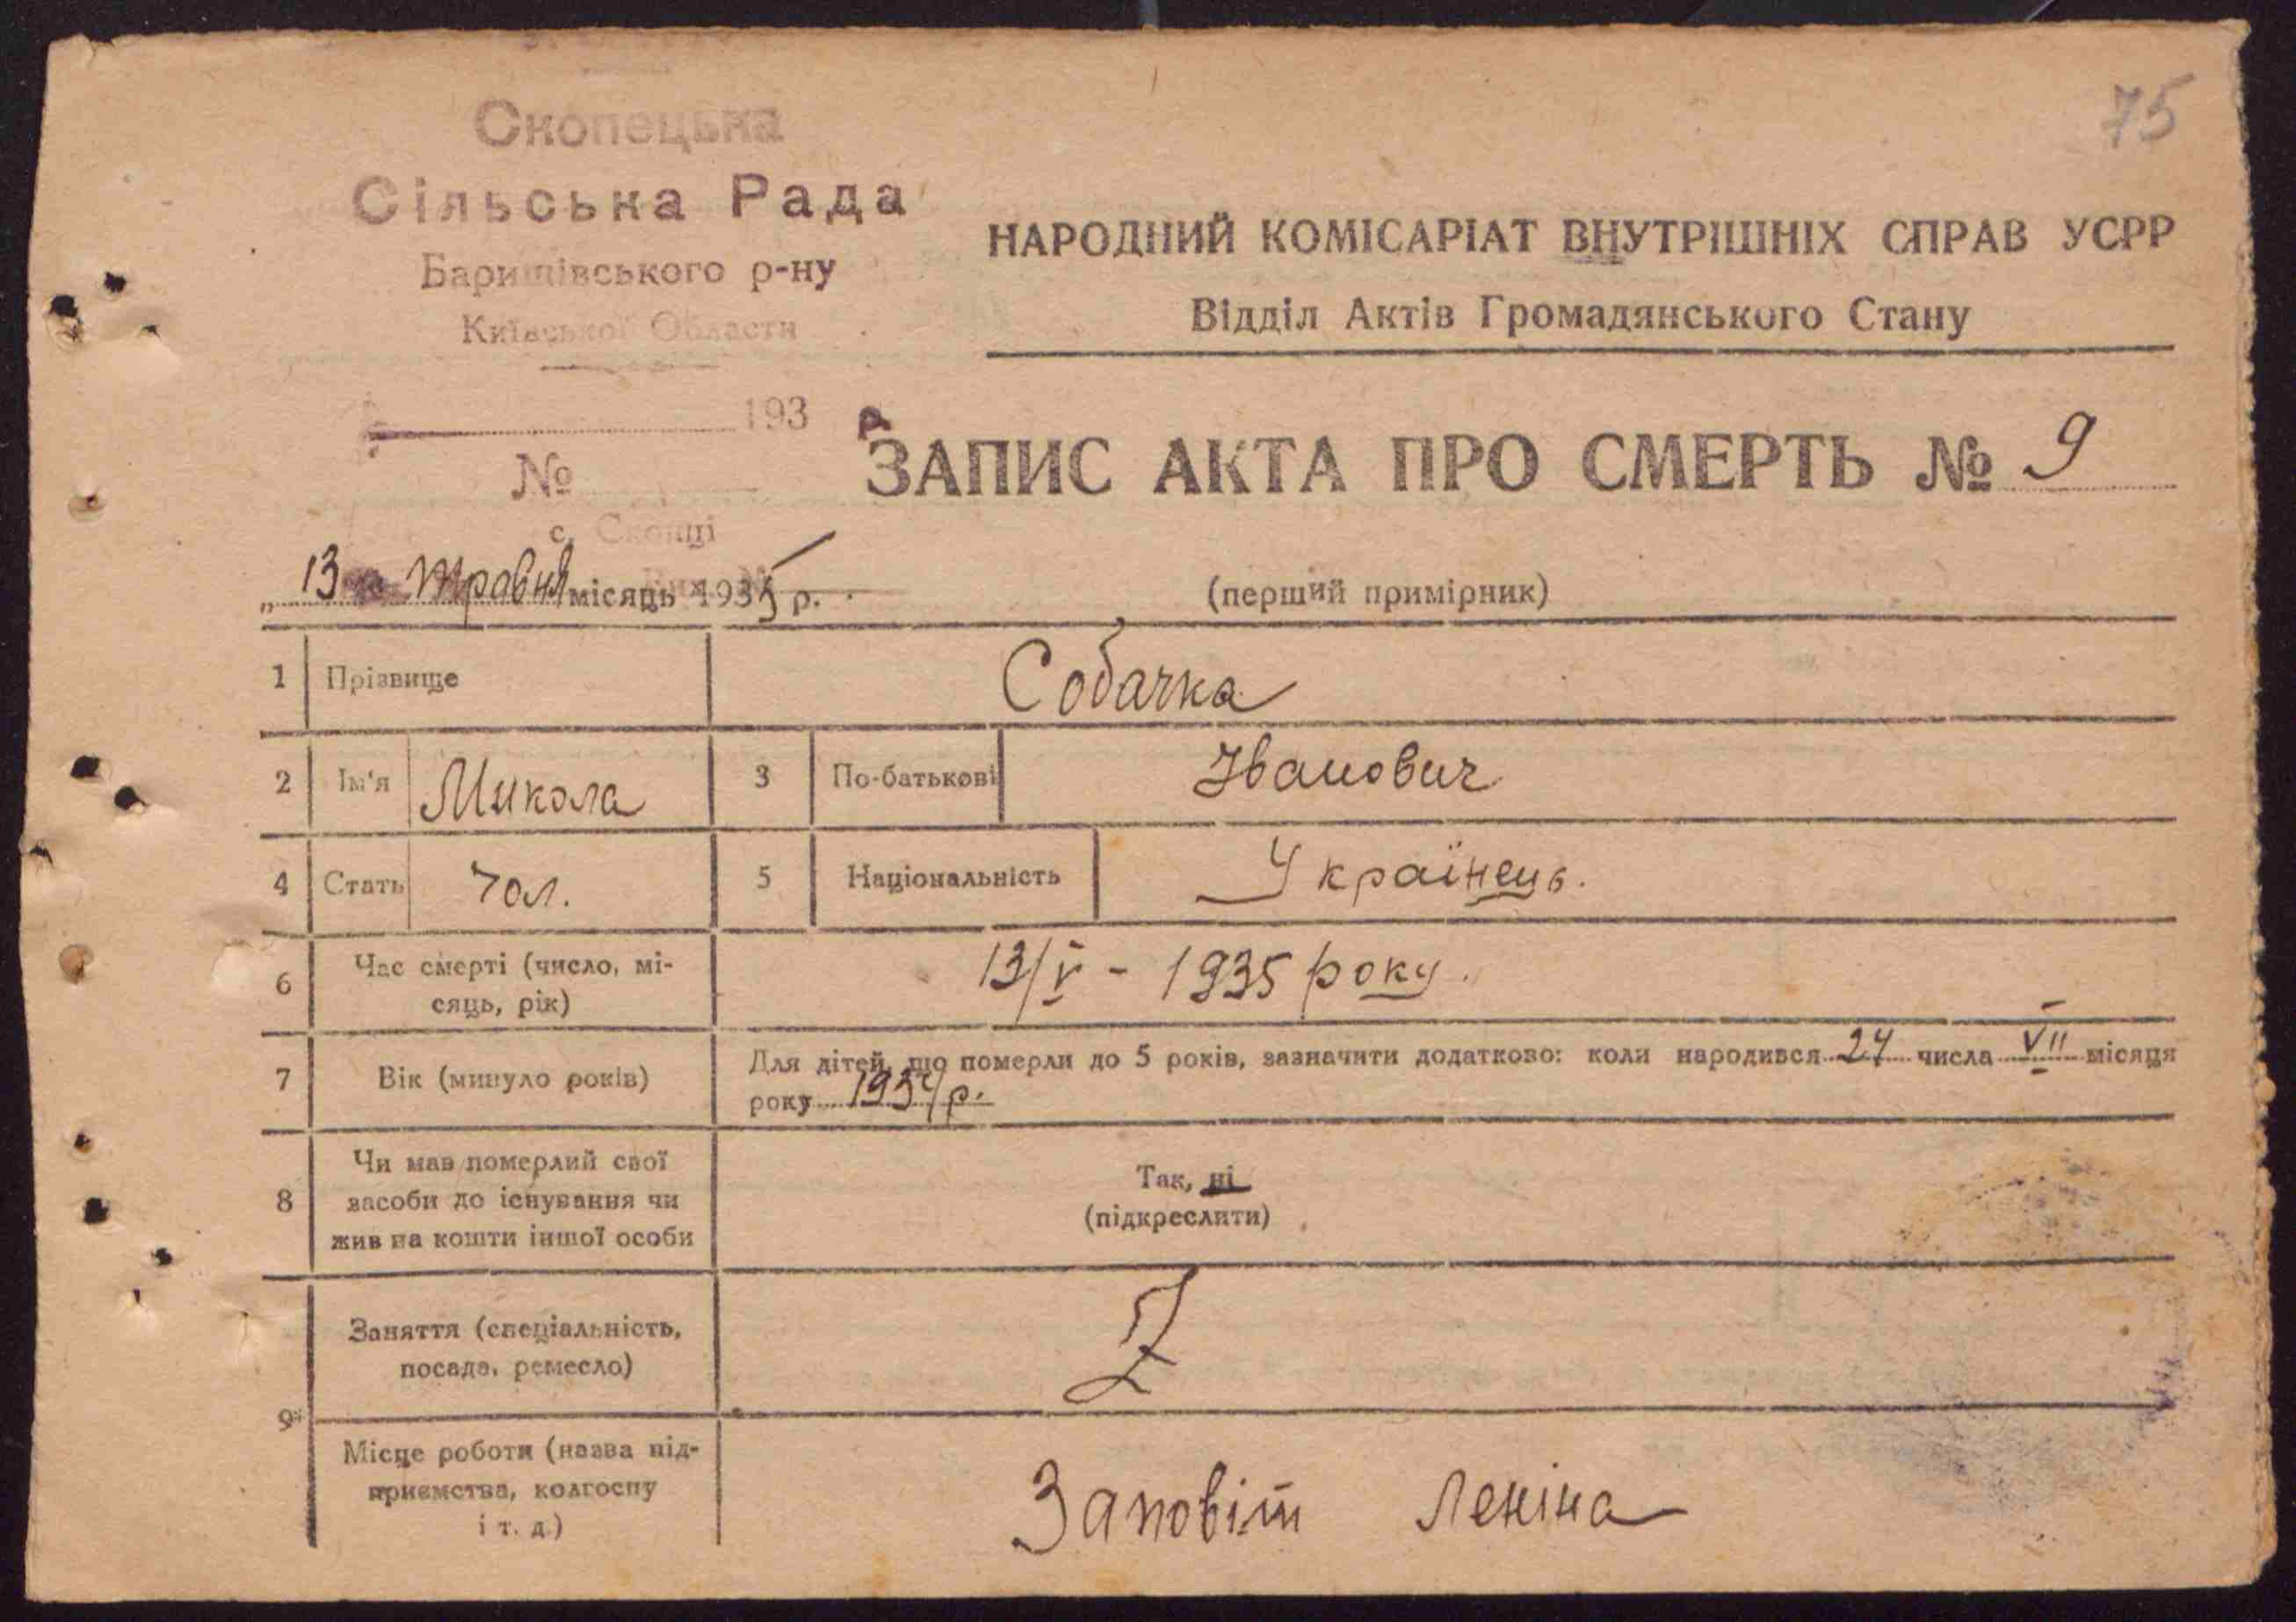 75
Скопецька
Сільська Рада
Баришівського р-ну
Київської Области
193 р
№
с. Скопці
НАРОДНИЙ КОМІСАРІАТ ВНУТРІШНІХ СПРАВ УСРР
Відділ Актів Громадянського Стану
ЗАПИС АКТА ПРО СМЕРТЬ № 9
„ 13 " травня місяць 1935 р.
(перший примірник)
1 Прізвище Собачка
2 Ім'я Микола 3 По-батькові Іванович
4 Стать Чол. 5 Національність Українець.
6 Час смерті (число, мі-
сяць, рік) 13/V - 1935 року.
7 Вік (минуло років) Для дітей, що померли до 5 років, зазначити додатково: коли народився 24 числа VII місяця
року 1934 р.
8 Чи мав померлий свої
засоби до існування чи
жив на кошти іншої особи
Так, ні
(підкреслити)
9 Заняття (спеціальність,
посада, ремесло)
Місце роботи (назва під-
приємства, колгоспу
і т. д.)
Заповіт Леніна